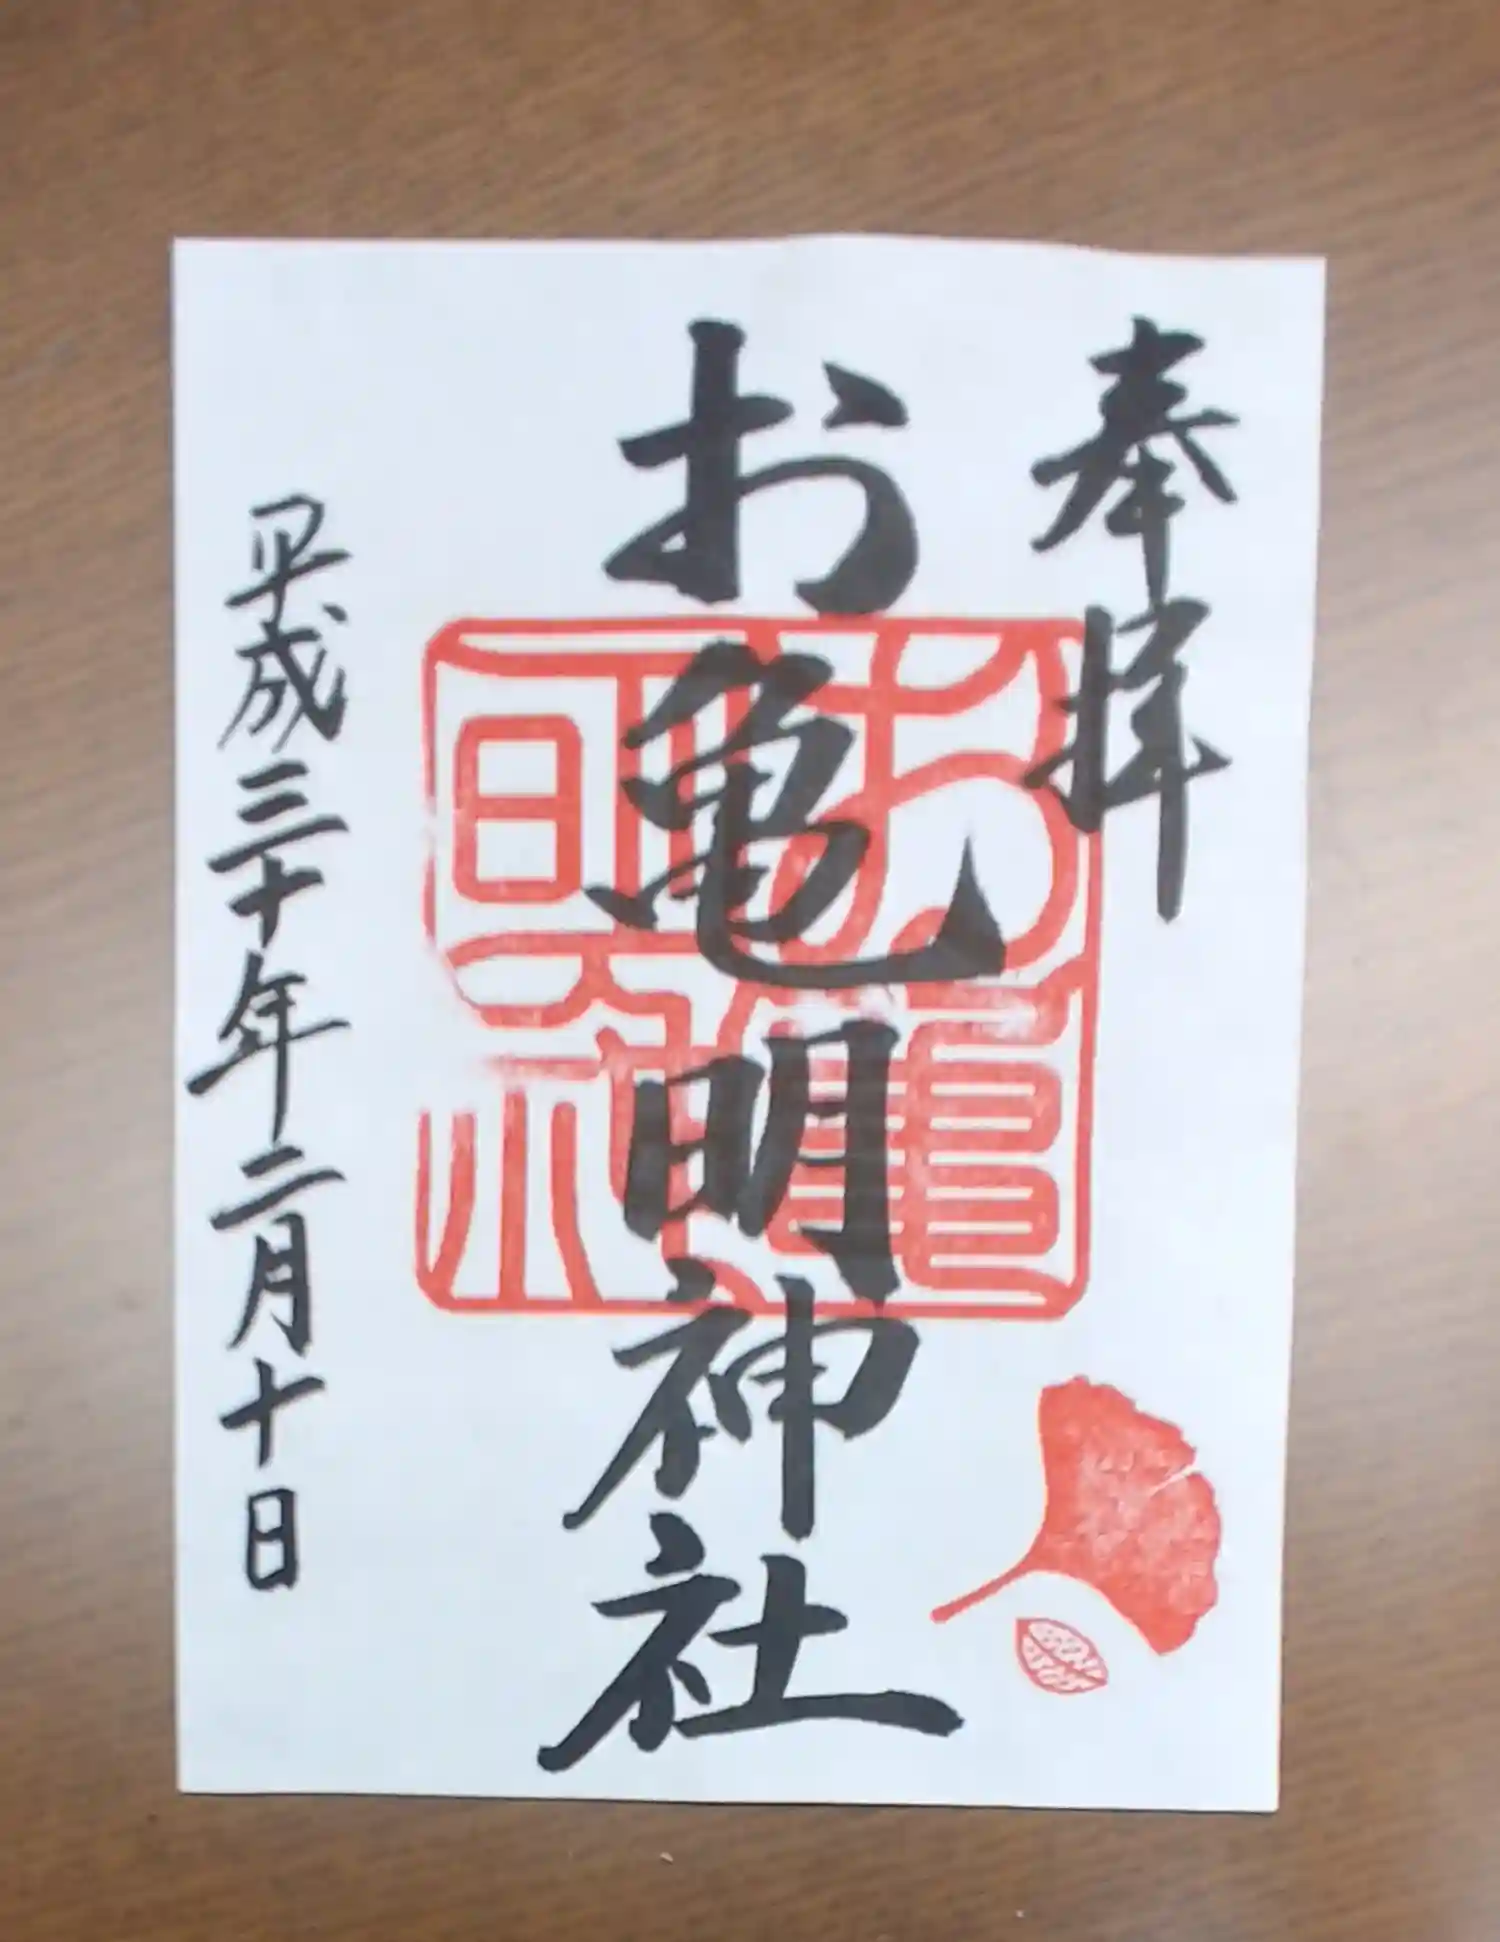 奉拝
お亀明神社
平成三十年二月十日